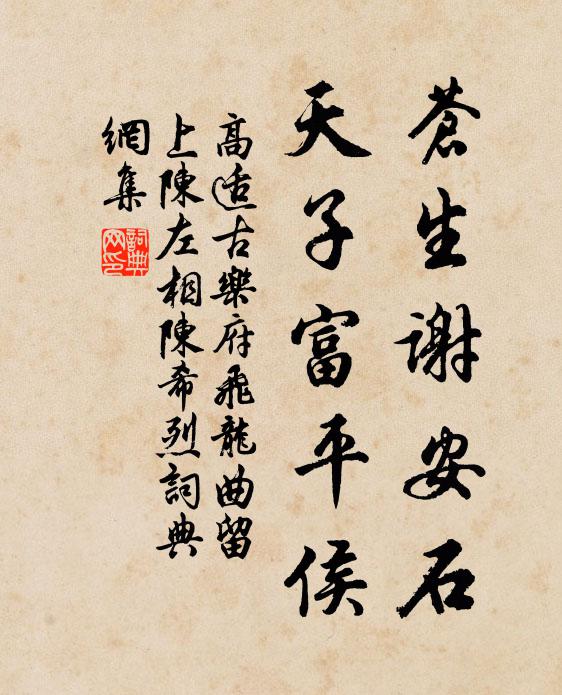 蒼生謝安石
天子富平侯
高適古樂府飛龍曲留
上陳左相陳希烈詞典
網集
詞典網印